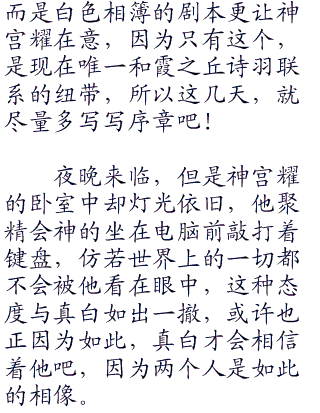 而是白色相簿的剧本更让神
宫耀在意，因为只有这个，
是现在唯一和霞之丘诗羽联
系的纽带，所以这几天，就
尽量多写写序章吧！
夜晚来临，但是神宫耀
的卧室中却灯光依旧，他聚
精会神的坐在电脑前敲打着
键盘，仿若世界上的一切都
不会被他看在眼中，这种态
度与真白如出一撤，或许也
正因为如此，真白才会相信
着他吧，因为两个人是如此
的相像。